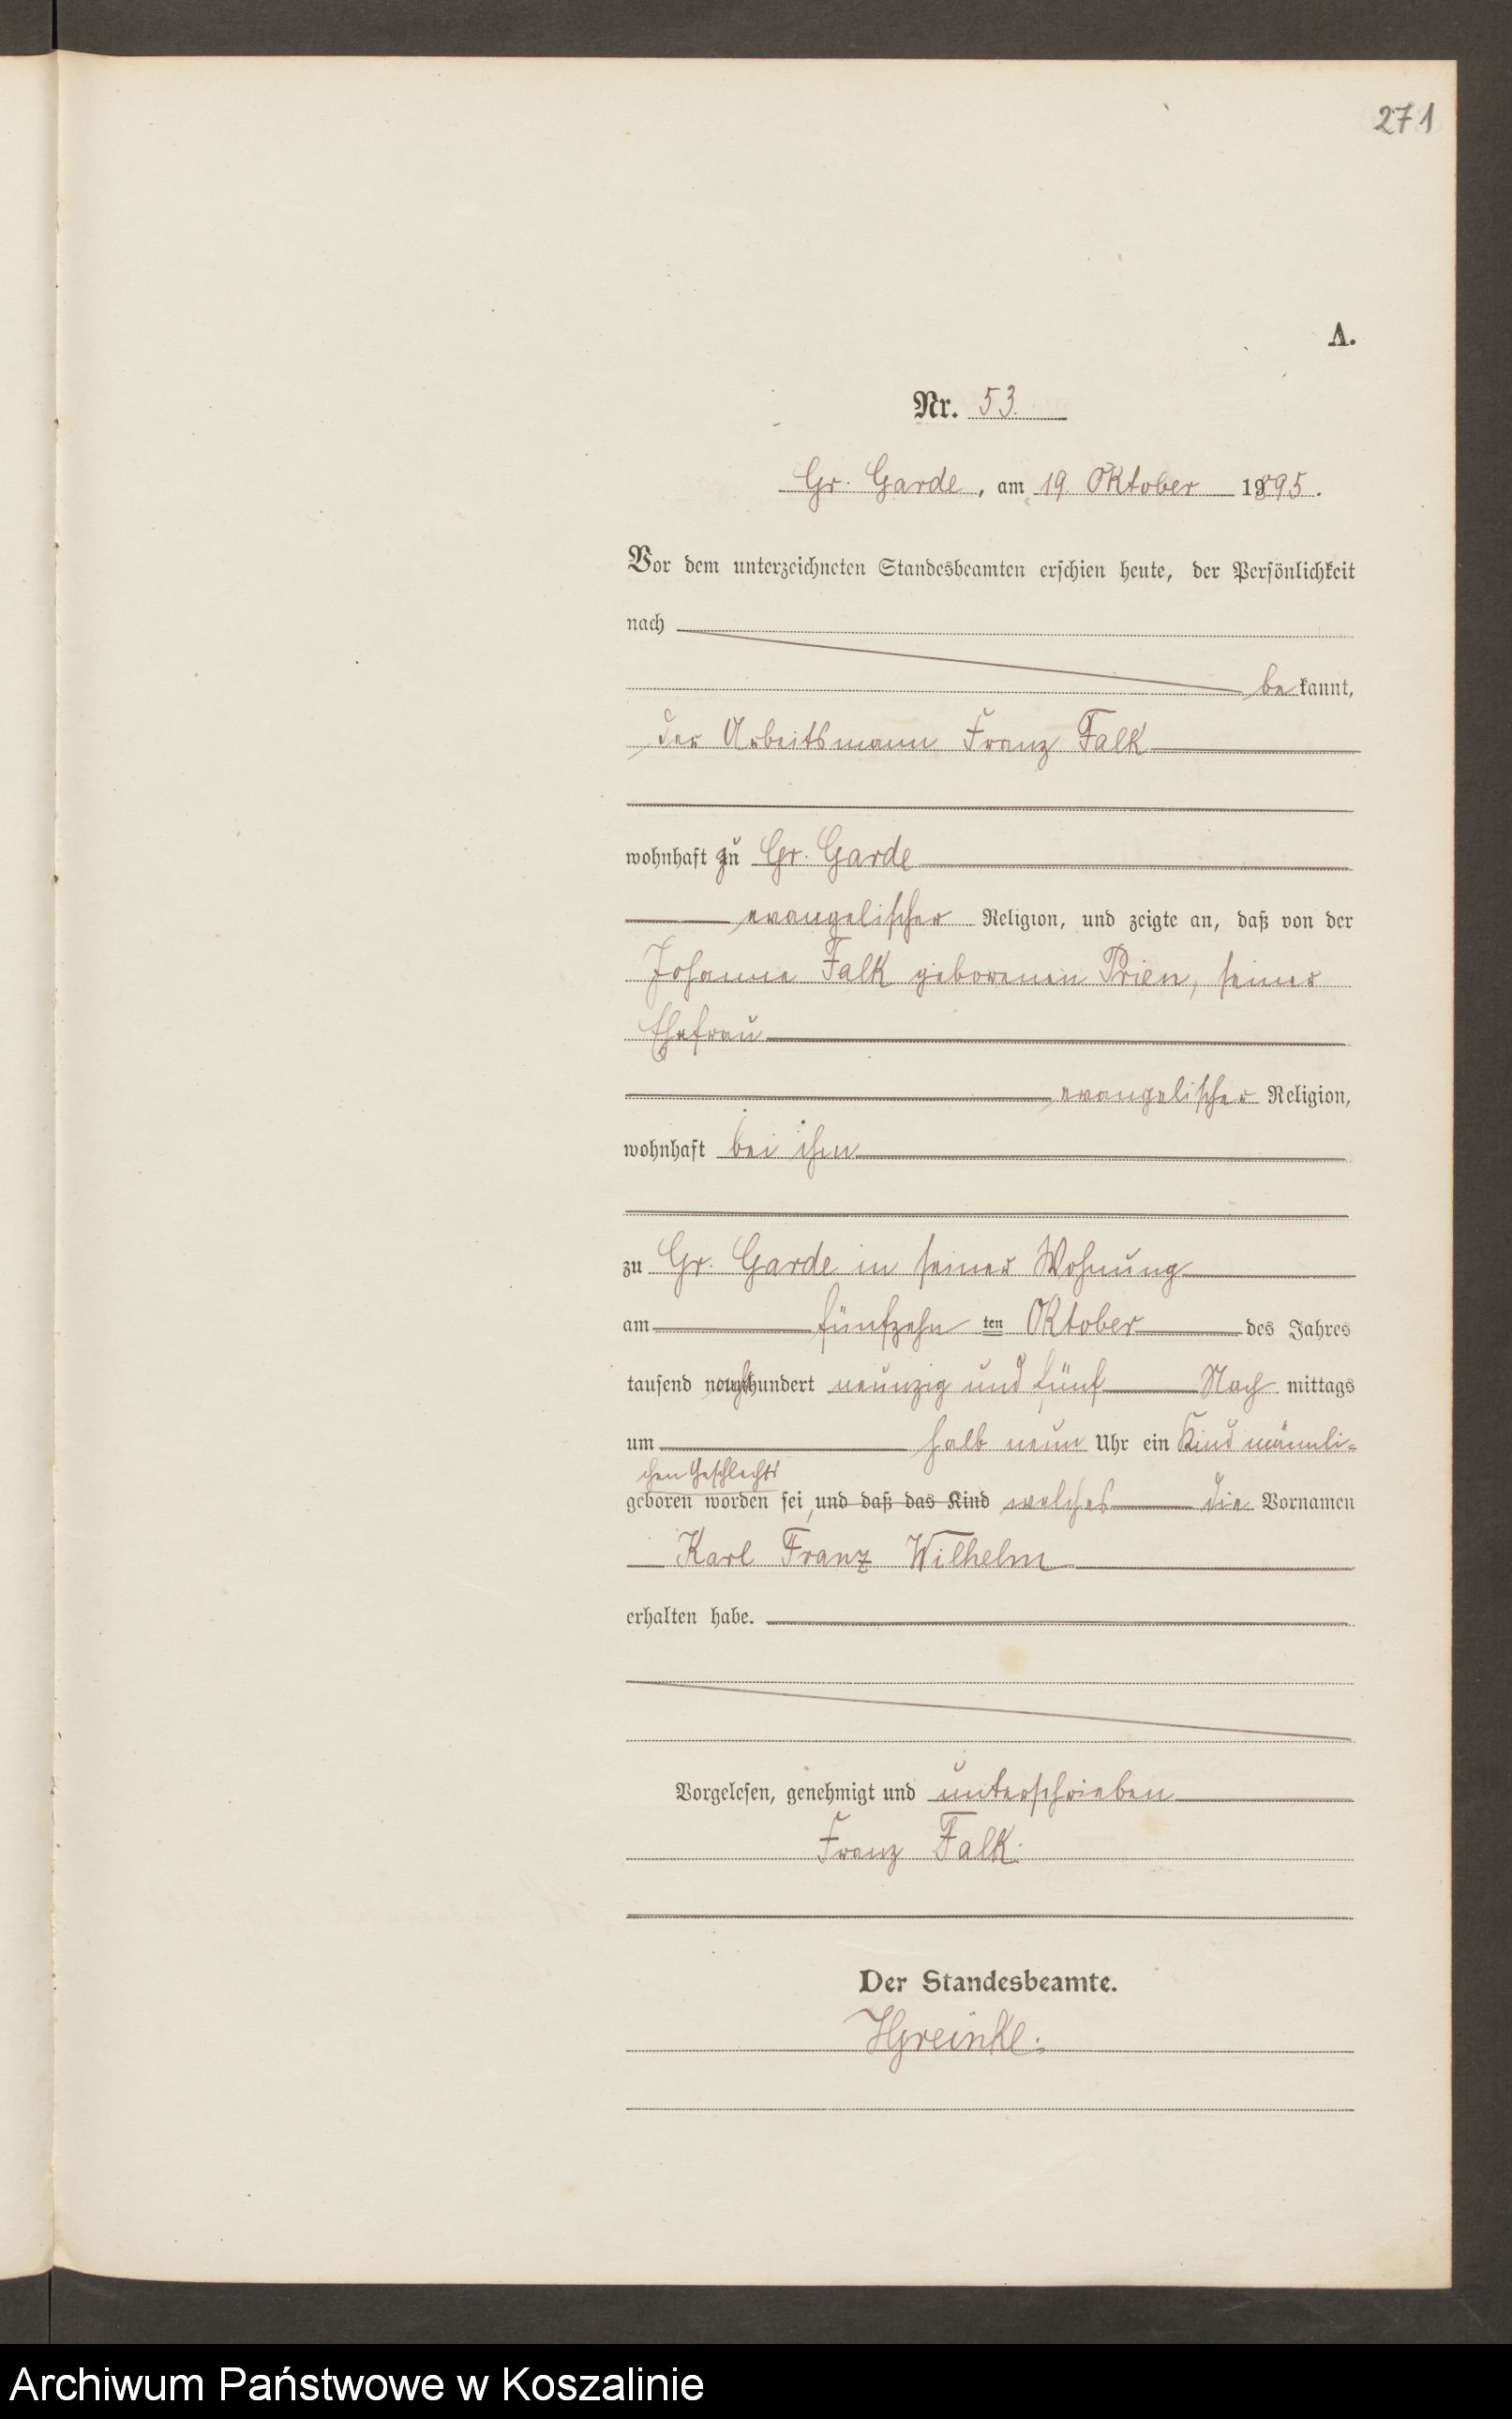 271
A.
Nr. 53.
Gr. Garde, am 19. Oktober 1895.
Vor dem unterzeichneten Standesbeamten erschien heute, der Persönlichkeit
nach
be kannt,
der Arbeitsmann Franz Falk
wohnhaft zu Gr. Garde
evangelischer Religion, und zeigte an, daß von der
Johanne Falk geborenen Prien, seiner
Ehefrau
evangelischer Religion,
wohnhaft bei ihm
zu Gr. Garde in seiner Wohnung
am fünfzehn ten Oktober des Jahres
tausend achthundert neunzig und fünf Nach mittags
um halb neun Uhr ein Kind männli-
chen Geschlechts
geboren worden sei, und daß das Kind welches die Vornamen
Karl Franz Wilhelm
erhalten habe.
Vorgelesen, genehmigt und unterschrieben
Franz Falk.
Der Standesbeamte.
Archiwum Państwowe w Koszalinie